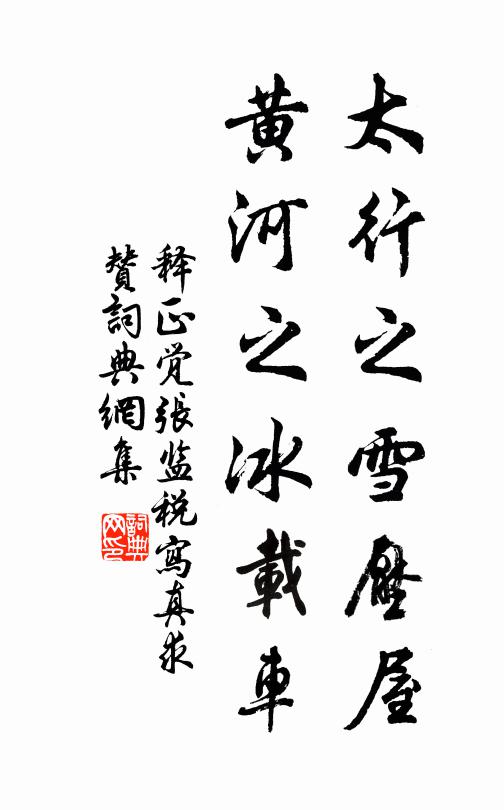 太行之雪壓屋
黄河之冰載車
释正觉張监税寫真求
贊詞典網集
詞典网印